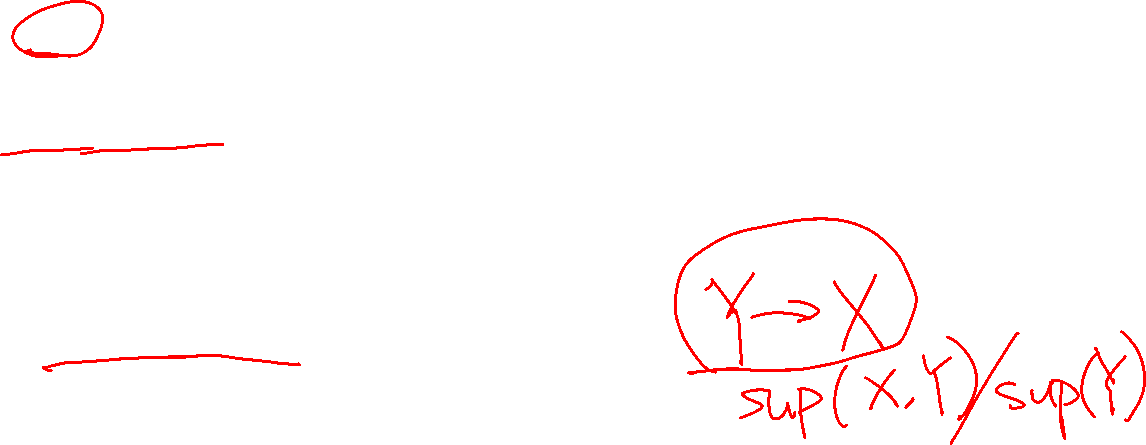 Y → X
sup(X,Y)/sup(Y)